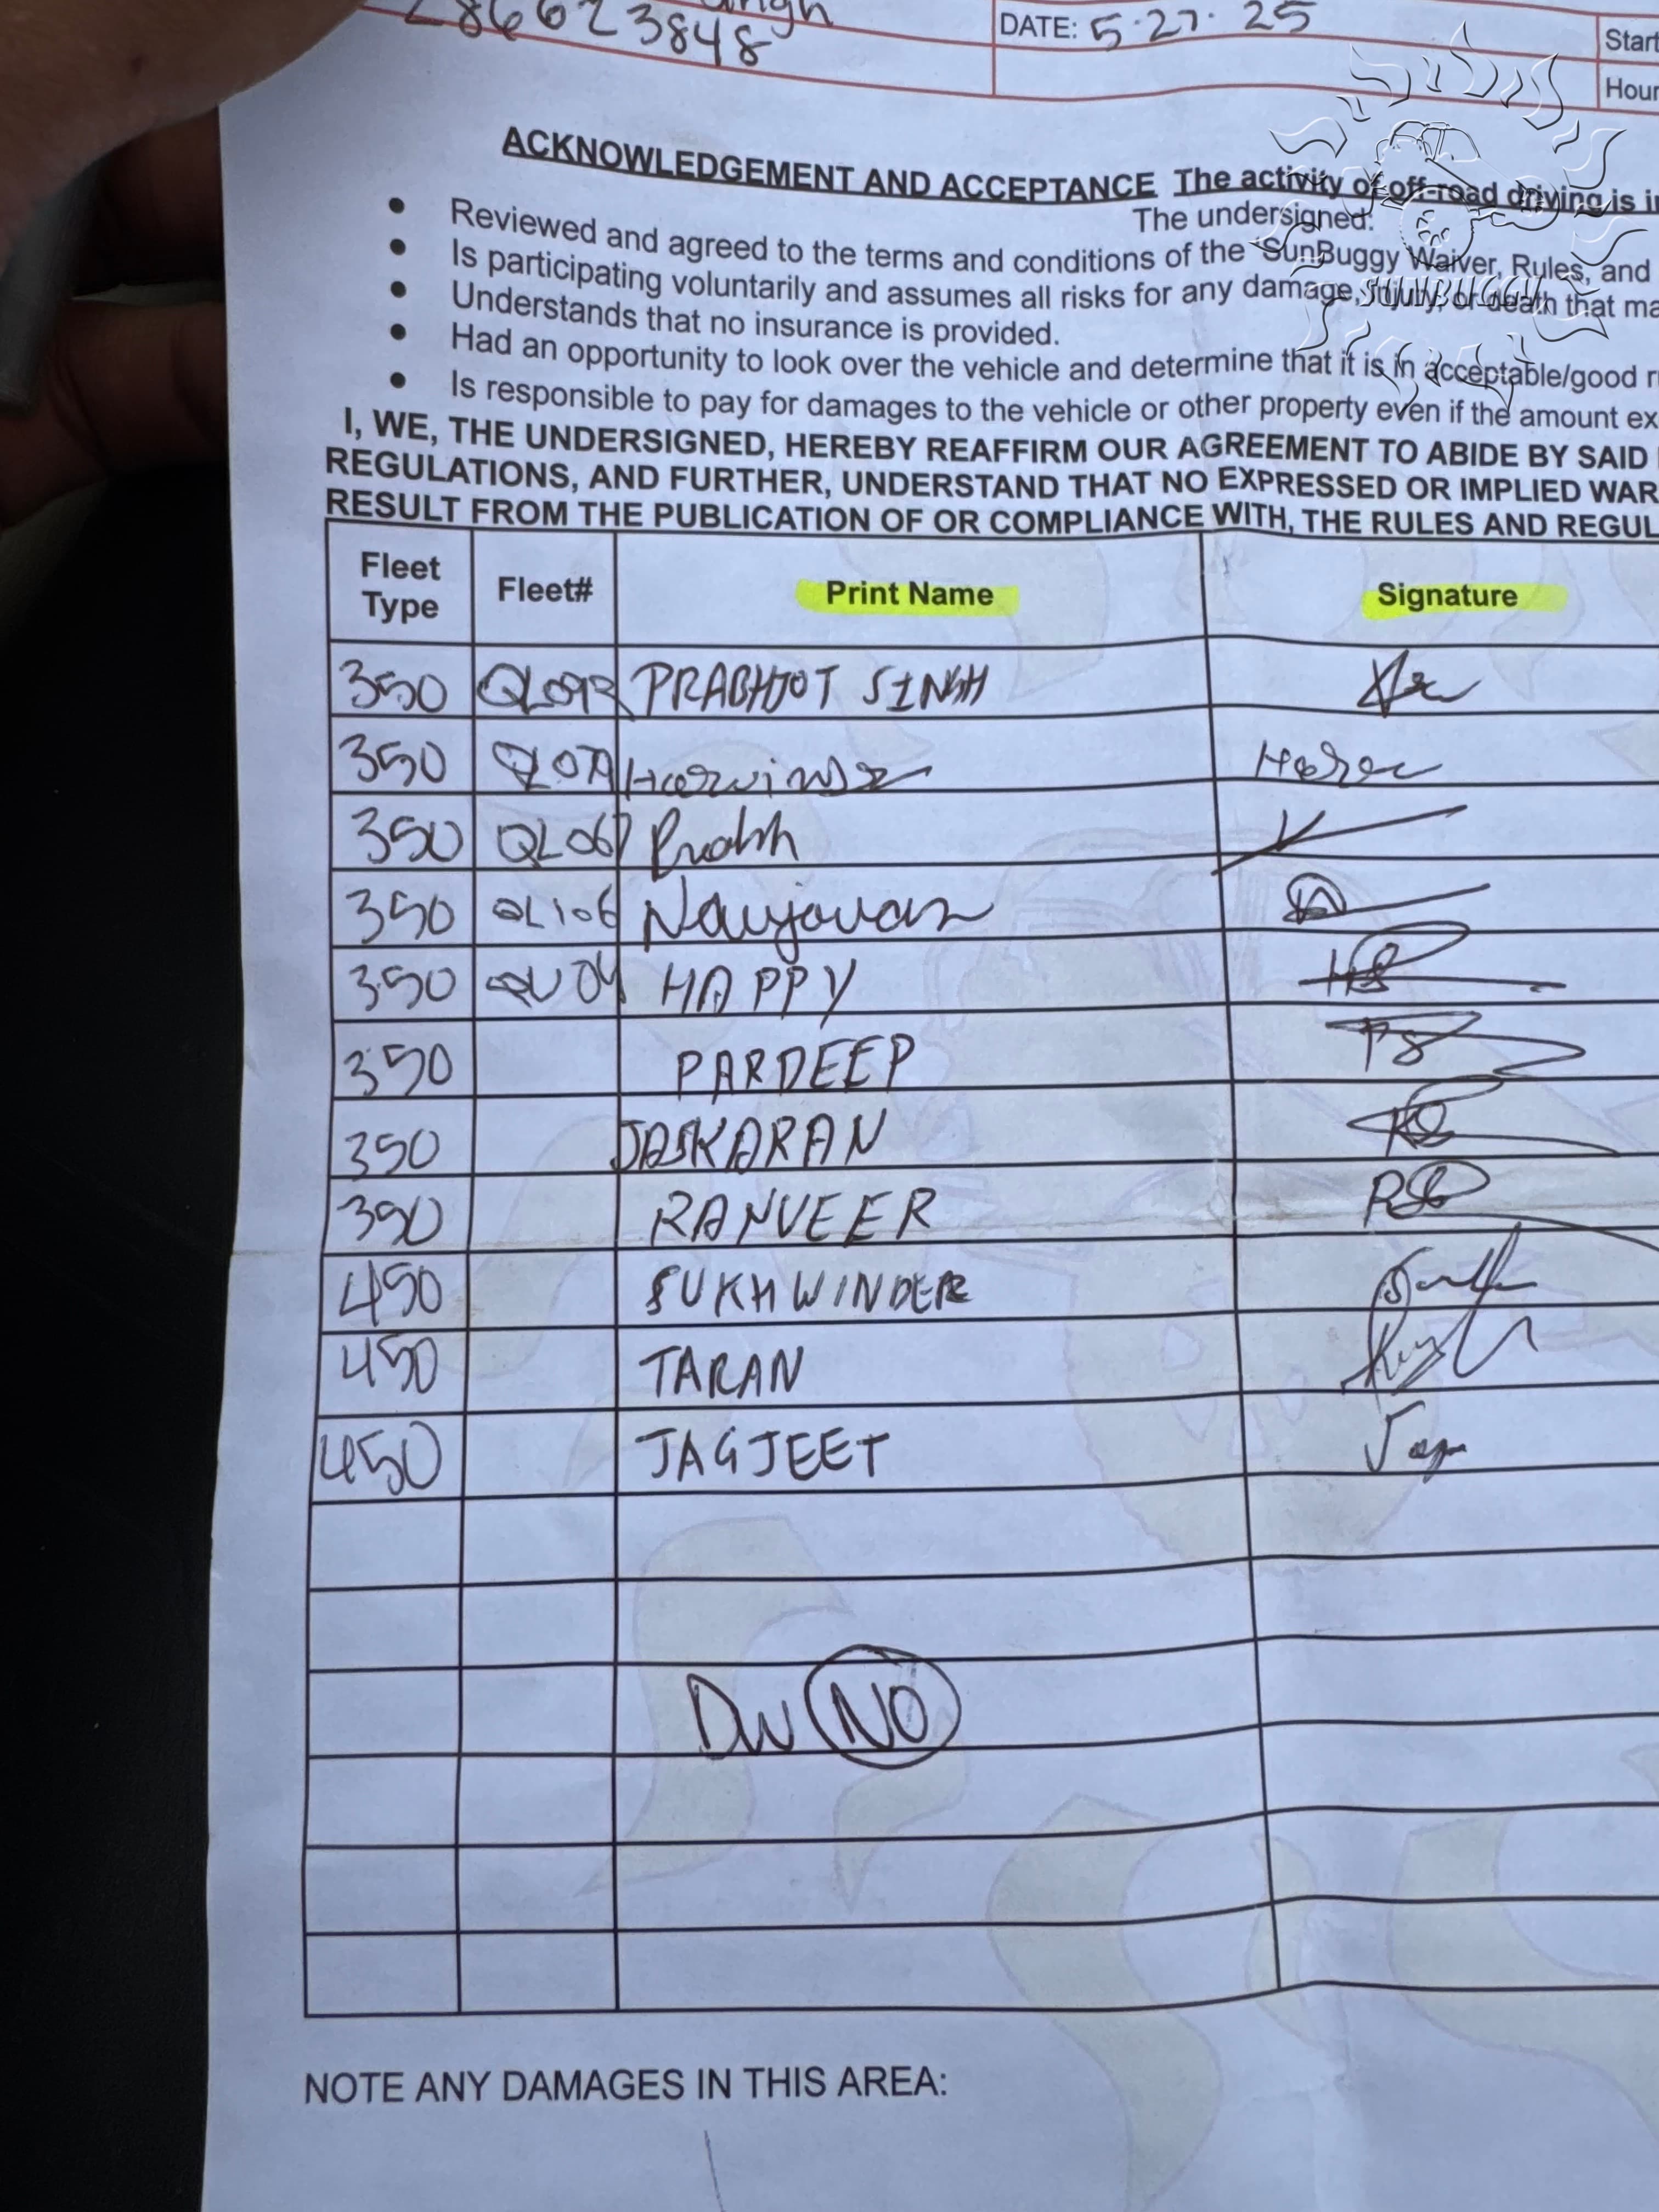 286623848
DATE: 5·27·25
Start
Hour
ACKNOWLEDGEMENT AND ACCEPTANCE The activity of off-road driving is
The undersigned:
SUNBUGGY
• Reviewed and agreed to the terms and conditions of the SunBuggy Waiver, Rules, and
• Is participating voluntarily and assumes all risks for any damage, injury, or death that
• Understands that no insurance is provided.
• Had an opportunity to look over the vehicle and determine that it is in acceptable/good
• Is responsible to pay for damages to the vehicle or other property even if the amount
I, WE, THE UNDERSIGNED, HEREBY REAFFIRM OUR AGREEMENT TO ABIDE BY SAID
REGULATIONS, AND FURTHER, UNDERSTAND THAT NO EXPRESSED OR IMPLIED WAR
RESULT FROM THE PUBLICATION OF OR COMPLIANCE WITH, THE RULES AND REGUL
Fleet Type Fleet# Print Name Signature
350 PRABHJOT SINGH
350
350 QL067 Prabh
350 QL106 Navjovan
350 HAPPY HS
350 PARDEEP PS
350 JASKARAN
350 RANVEER
450 SUKHWINDER
450 TARAN
450 JAGJEET
DW NO
NOTE ANY DAMAGES IN THIS AREA: